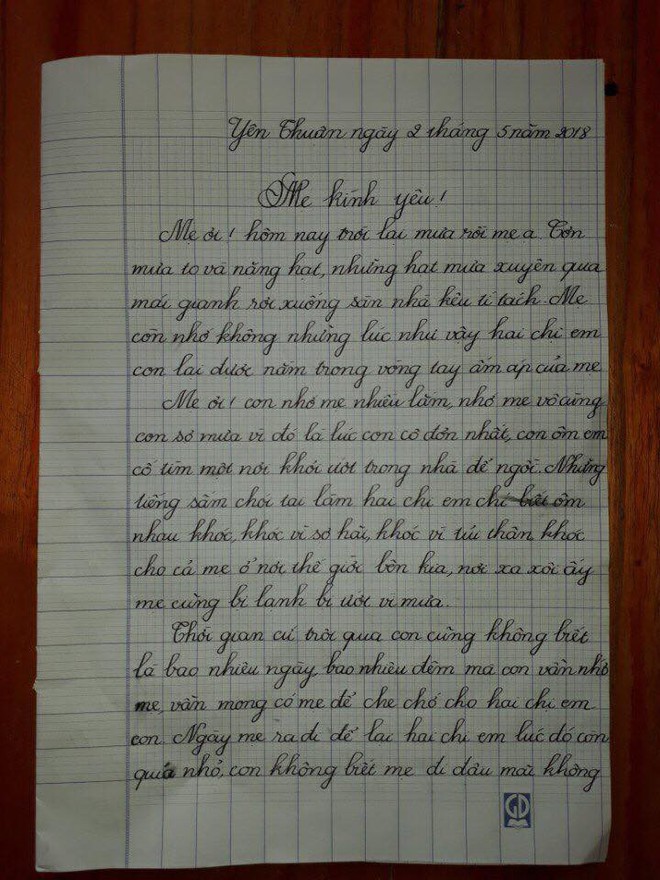 Yên Thuân ngày 2 tháng 5 năm 2018
Mẹ kính yêu!
Mẹ ơi! hôm nay trời lại mưa rồi mẹ ạ. Cơn
mưa to và nặng hạt, những hạt mưa xuyên qua
mái gianh rơi xuống sàn nhà kêu tí tách. Mẹ
còn nhớ không những lúc như vậy hai chị em
con lại được nằm trong vòng tay ấm áp của mẹ
Mẹ ơi! con nhớ mẹ nhiều lắm, nhớ mẹ vô cùng
con sợ mưa vì đó là lúc con cô đơn nhất, con ôm em
cố tìm một nơi khỏi ướt trong nhà để ngồi. Những
tiếng sấm chói tai làm hai chị em chỉ biết ôm
nhau khóc, khóc vì sợ hãi, khóc vì tủi thân, khóc
cho cả mẹ ở nơi thế giới bên kia, nơi xa xôi ấy
mẹ cũng bị lạnh bị ướt vì mưa.
Thời gian cứ trôi qua con cũng không biết
là bao nhiêu ngày, bao nhiêu đêm mà con vẫn nhớ
mẹ, vẫn mong có mẹ để che chở cho hai chị em
con. Ngày mẹ ra đi để lại hai chị em lúc đó còn
quá nhỏ, con không biết mẹ đi đâu mà không
GD